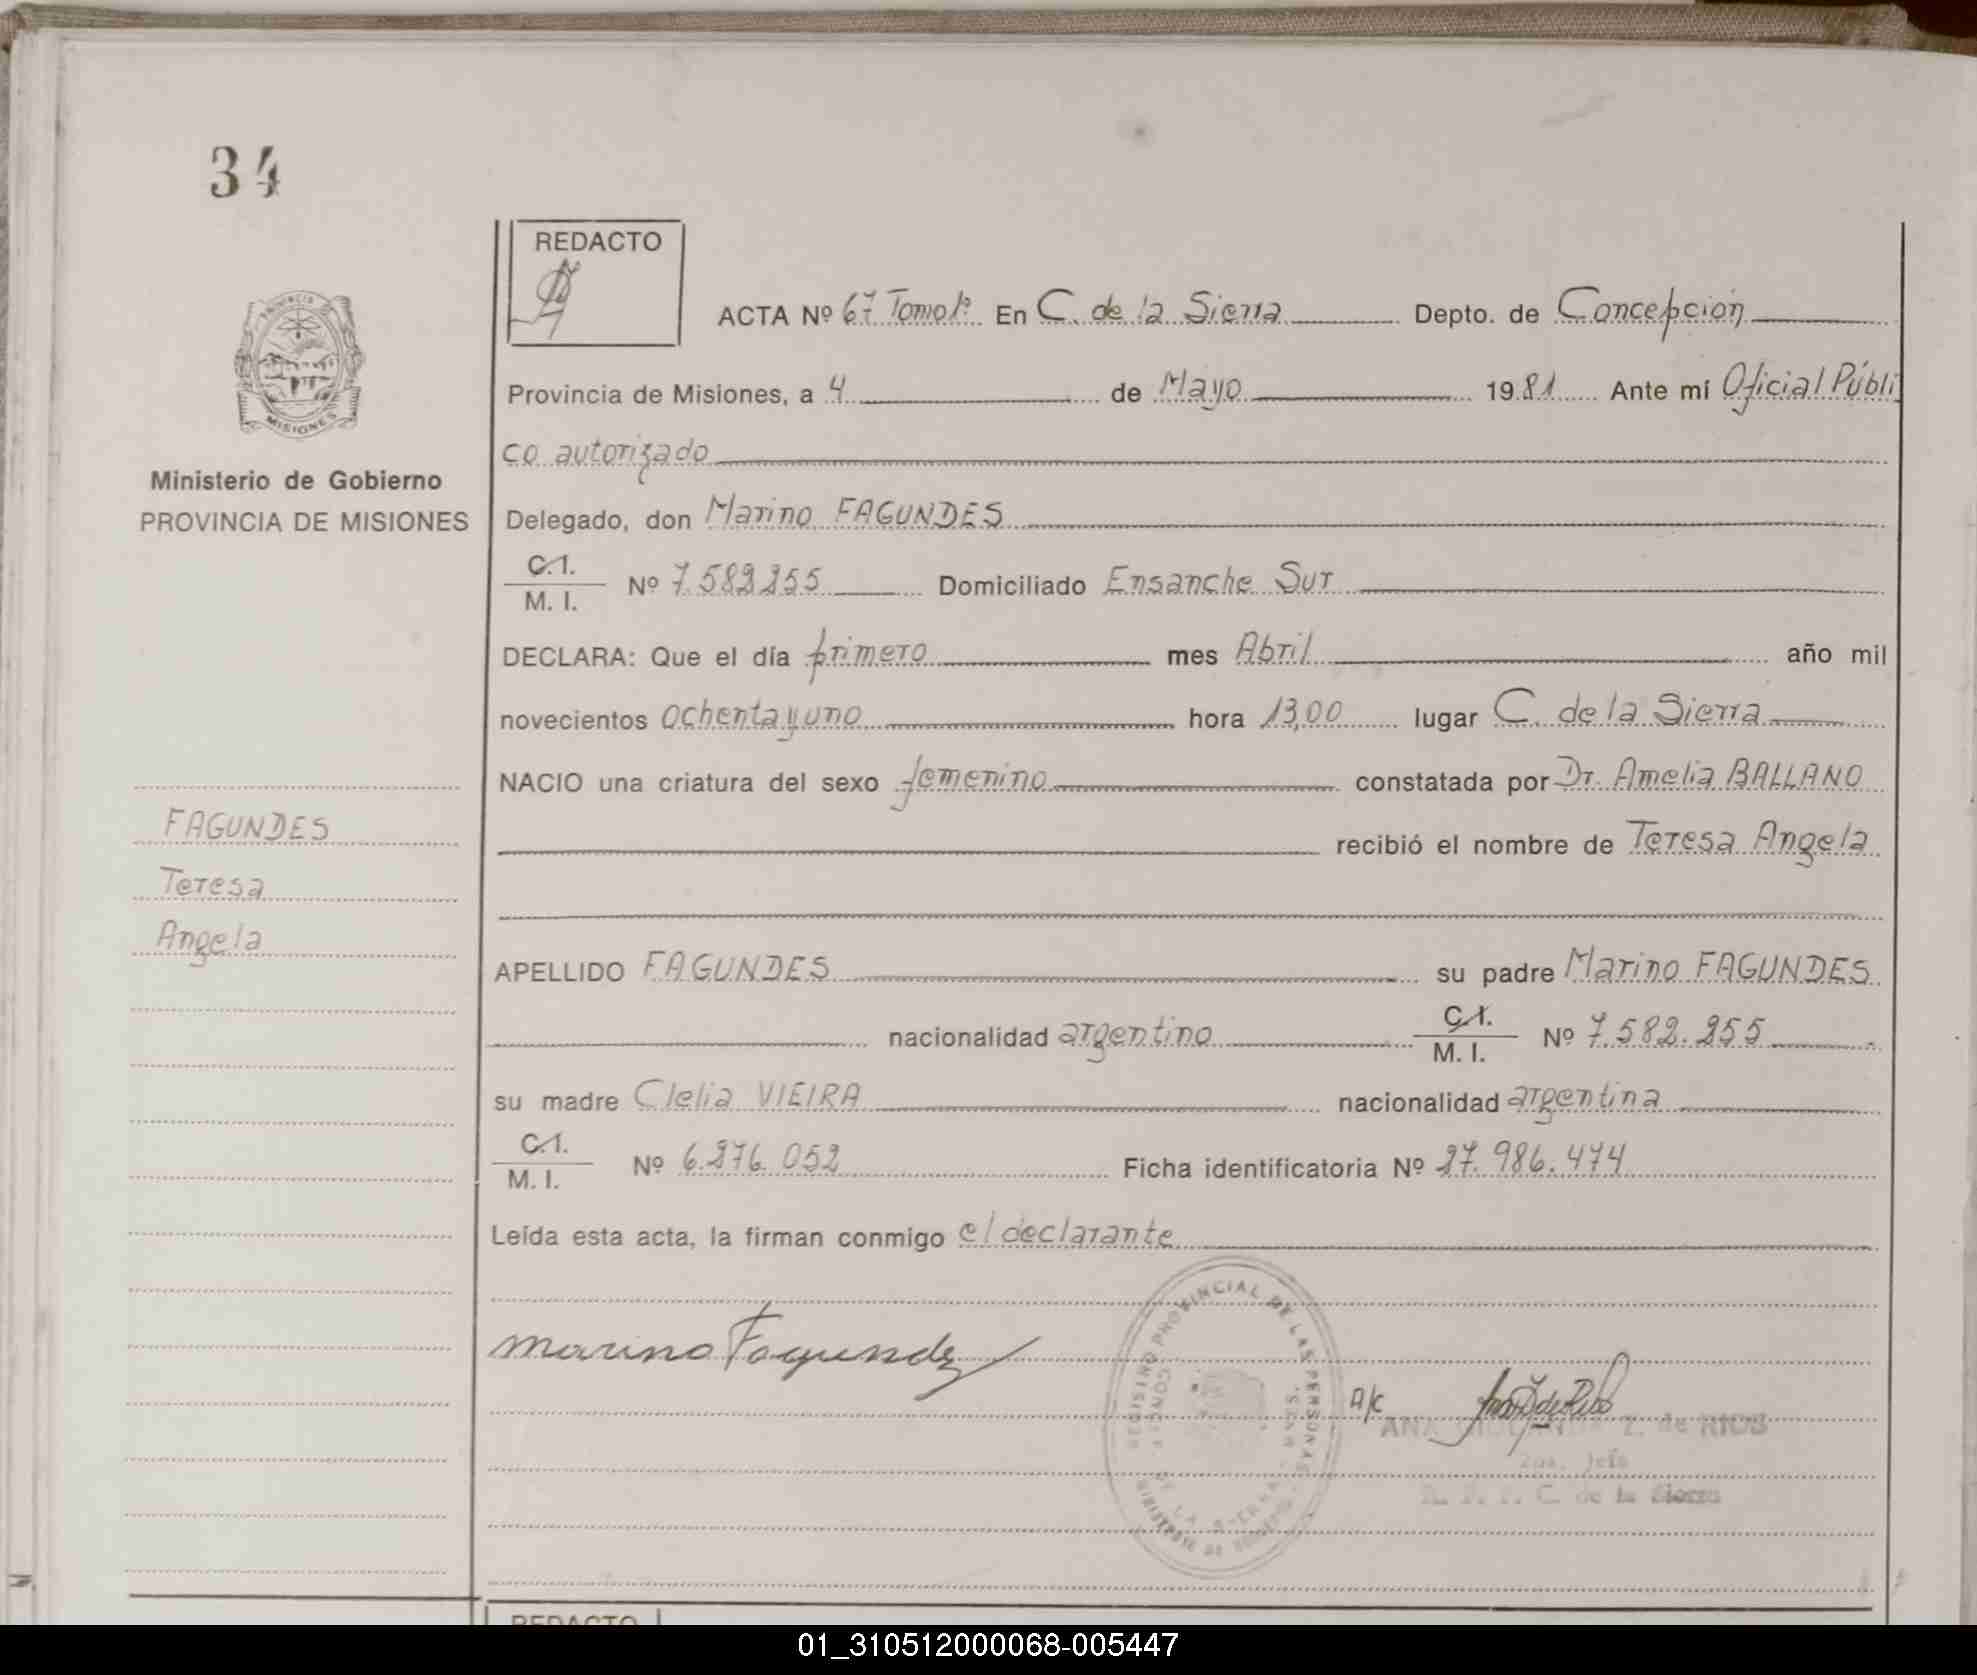 34
REDACTO
ACTA Nº 67 Tomo 1º En C. de la Sierra Depto. de Concepción
Provincia de Misiones, a 4 de Mayo 1981 Ante mí Oficial Públi
co autorizado
Ministerio de Gobierno
PROVINCIA DE MISIONES
Delegado, don Marino FAGUNDES
C.I.
M. I. Nº 7.582255 Domiciliado Ensanche Sur
DECLARA: Que el día primero mes Abril año mil
novecientos ochenta y uno hora 13,00 lugar C. de la Sierra
NACIO una criatura del sexo femenino constatada por Dr. Amelia BALLANO
recibió el nombre de Teresa Angela
FAGUNDES
Teresa
Angela
APELLIDO FAGUNDES su padre Marino FAGUNDES
nacionalidad argentino C.I.
M. I. Nº 7.582.255
su madre Clelia VIEIRA nacionalidad argentina
C.I.
M. I. Nº 6.276.052 Ficha identificatoria Nº 27.986.474
Leída esta acta, la firman conmigo el declarante
Marino Fagundez
REGISTRO PROVINCIAL DE LAS PERSONAS
A/c
ANA Z. de RIOS
Jefe
C. de la Sierra
REDACTO
01_310512000068-005447